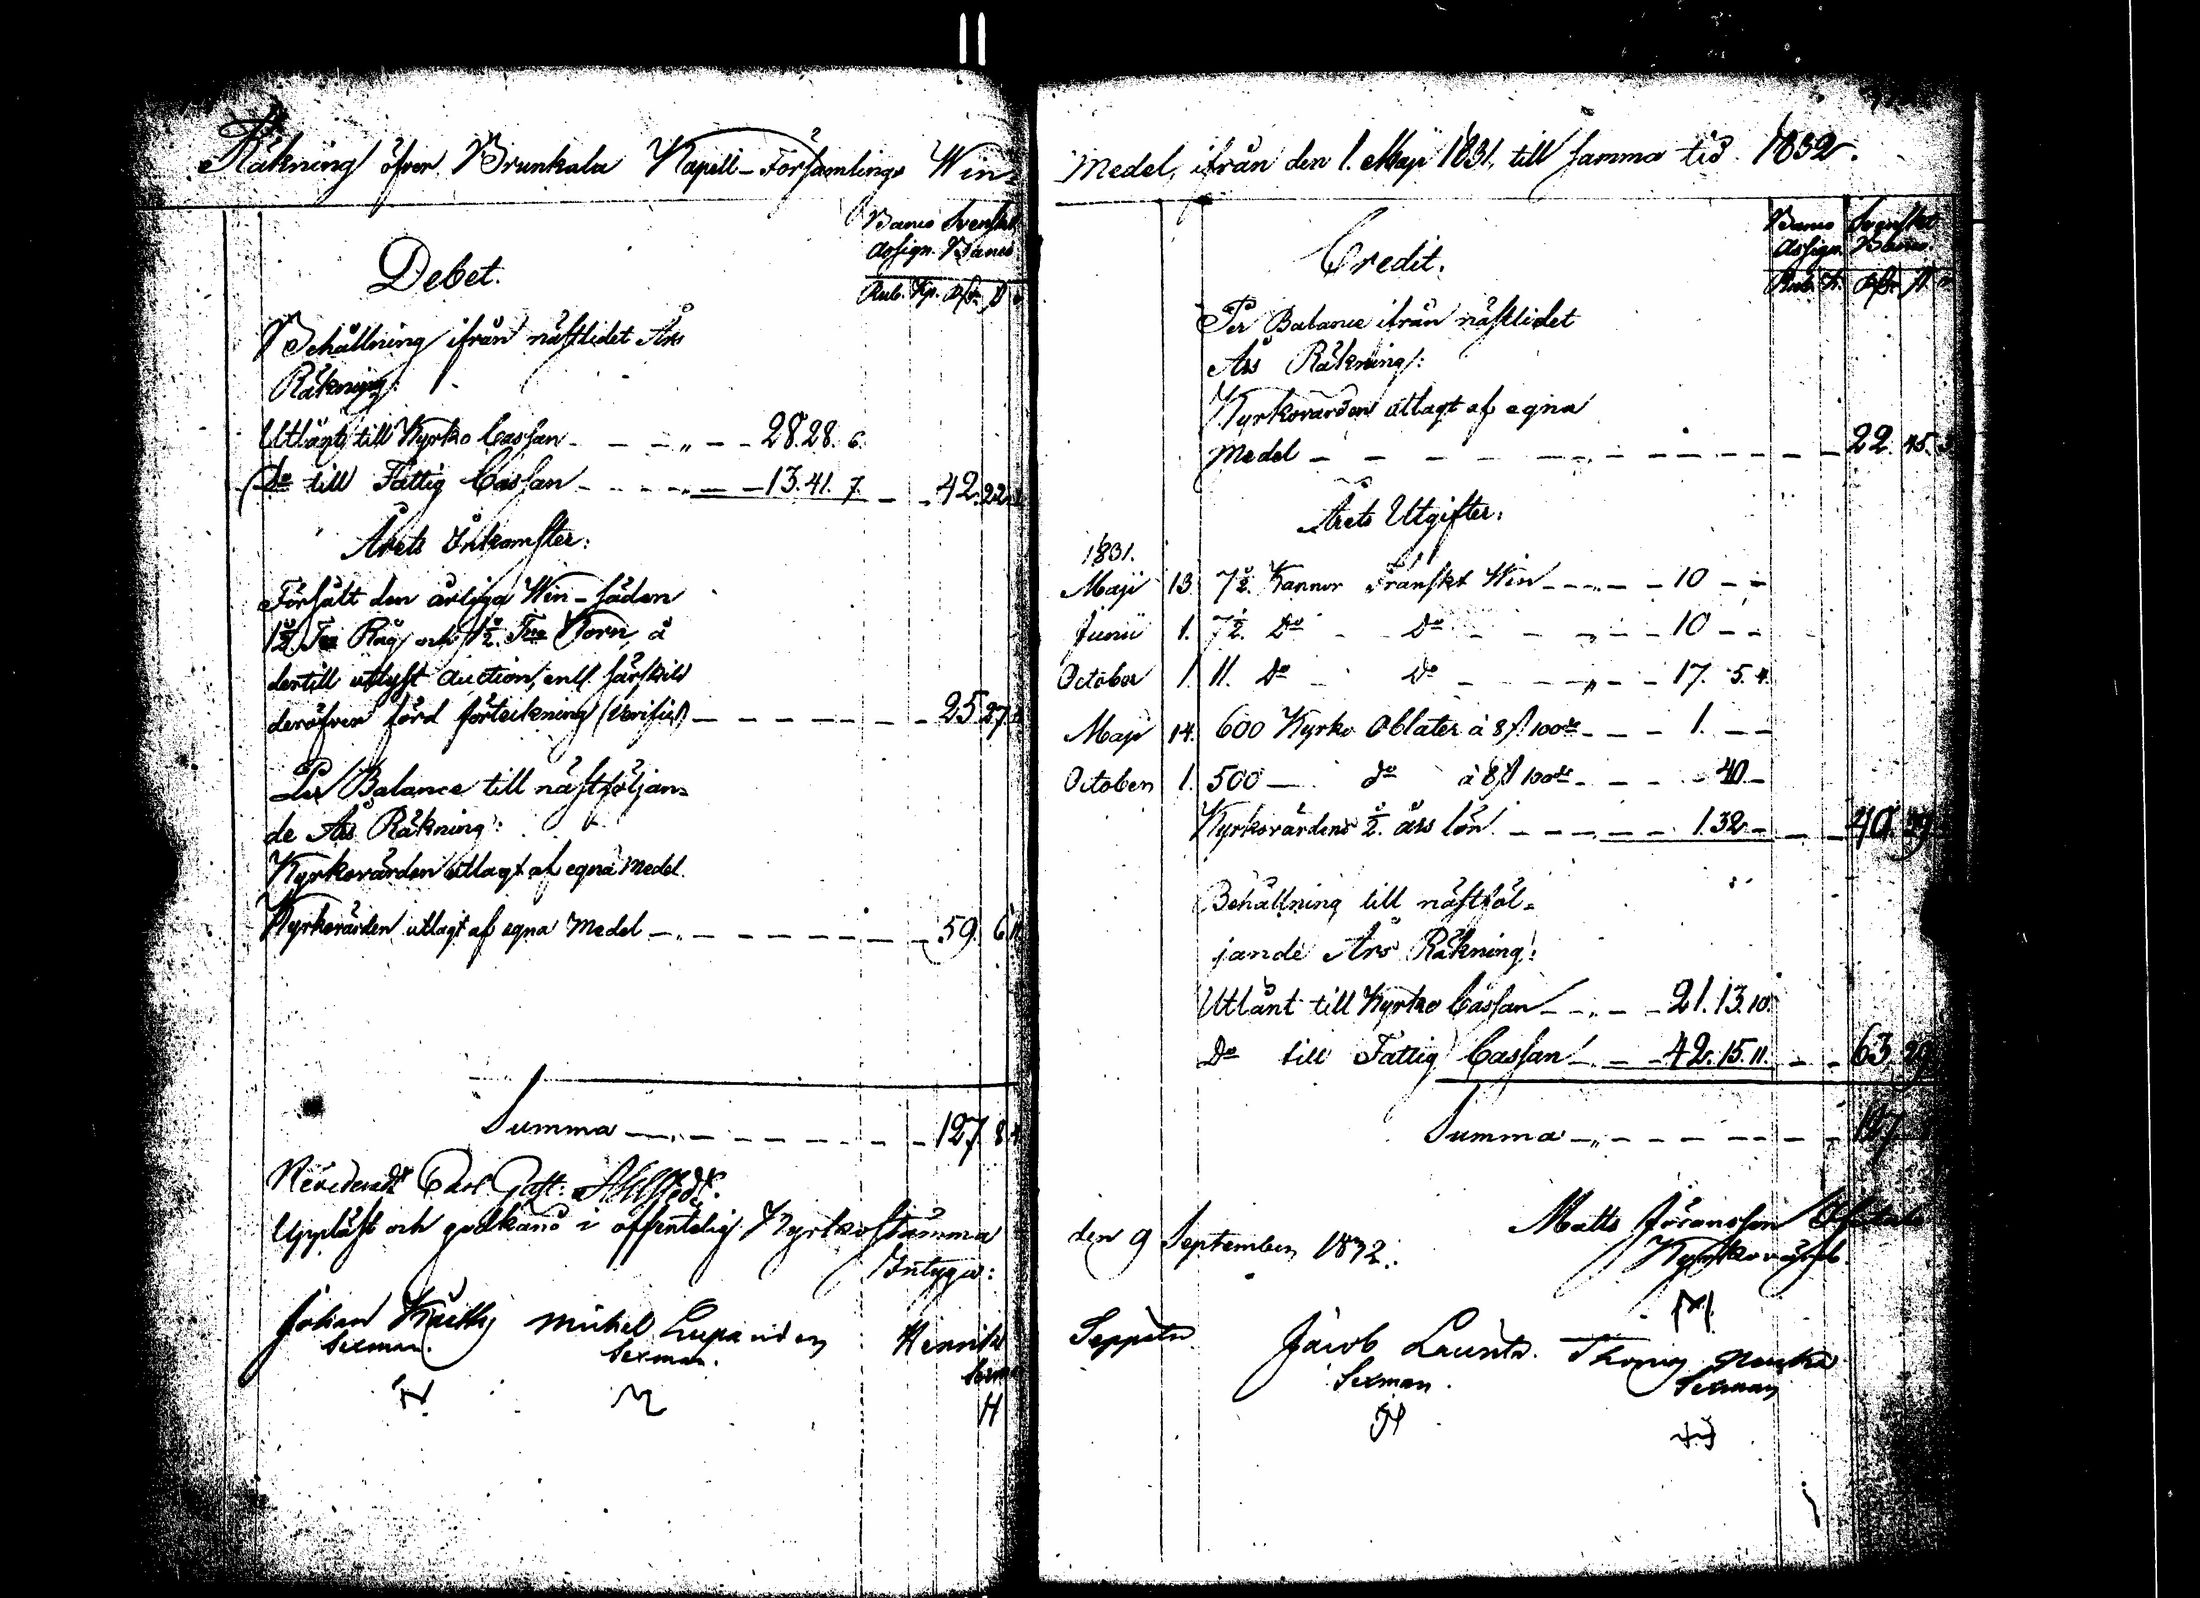 Räkning öfver Brunkala Kapell-Församlings Win-
Debet.
Banco Svenskt
Assign. Banco
Rub. Kp. Rdr.
Behållning ifrån nästlidet Års
Räkning:
Utlänt till Kyrko Cassan - - - „ - - 28. 28. 6.
Do till Fattig Cassan - - - - - 13. 41. 7. - - 42. 22.
Årets Inkomster:
Försålt den årliga Win-säden
1½ Tna Råg och 1½ Tna Korn, å
dertill utlyst Auction, enl. särskild
deröfver förd förteckning (Verific) - - - - - - - 25. 27.
Per Balance till nästföljan-
de Års Räkning:
Kyrkovärden utlagt af egna Medel.
Kyrkovärden utlagt af egna Medel - „ - - - - - - - 59. 6. 11
Summa - „ - - - - - - - 127. 8.
Revideradt Carl Gust. Ahlstedt.
Uppläst och godkänd i offentelig Kyrkostämma
Intyga:
Johan Michel Henrik
Sexman. Sexman.
H
Medel, ifrån den 1. Maji 1831, till samma tid 1832.
Credit.
Banco Svenskt
Assign. Banco.
Rub. K. Rdr.
Per Balance ifrån nästlidet
Års Räkning:
Kyrkovärden utlagt af egna
Medel - - - - - - - - - - - 22. 45.
Årets Utgifter:
1831.
Maji 13. 7½ Kannor Franskt Win - - „ - - 10 - -
Junii 1. 7½ Do - Do - - „ - - 10 - -
October 1. 11. Do - Do - - - „ - - 17. 5. 4.
Maji 14. 600 Kyrko Oblater à 8 100de - - - 1. - -
October 1. 500 - do à 8 100de - - - - 40 -
Kyrkovärdens ½ års lön - - - - - 1. 32 - - - 40. 29
Behållning till nästföl-
jande Års Räkning:
Utlänt till Kyrko Cassan - „ - - 21. 13. 10.
Do till Fattig Cassan - - - 42. 15. 11. - - 63. 29
Summa - „ - - - - - - 127
Matts Jöransson
den 9 September 1832.
Kyrkovärd.
Seppälä Jacob Thomas
Sexman. Sexman